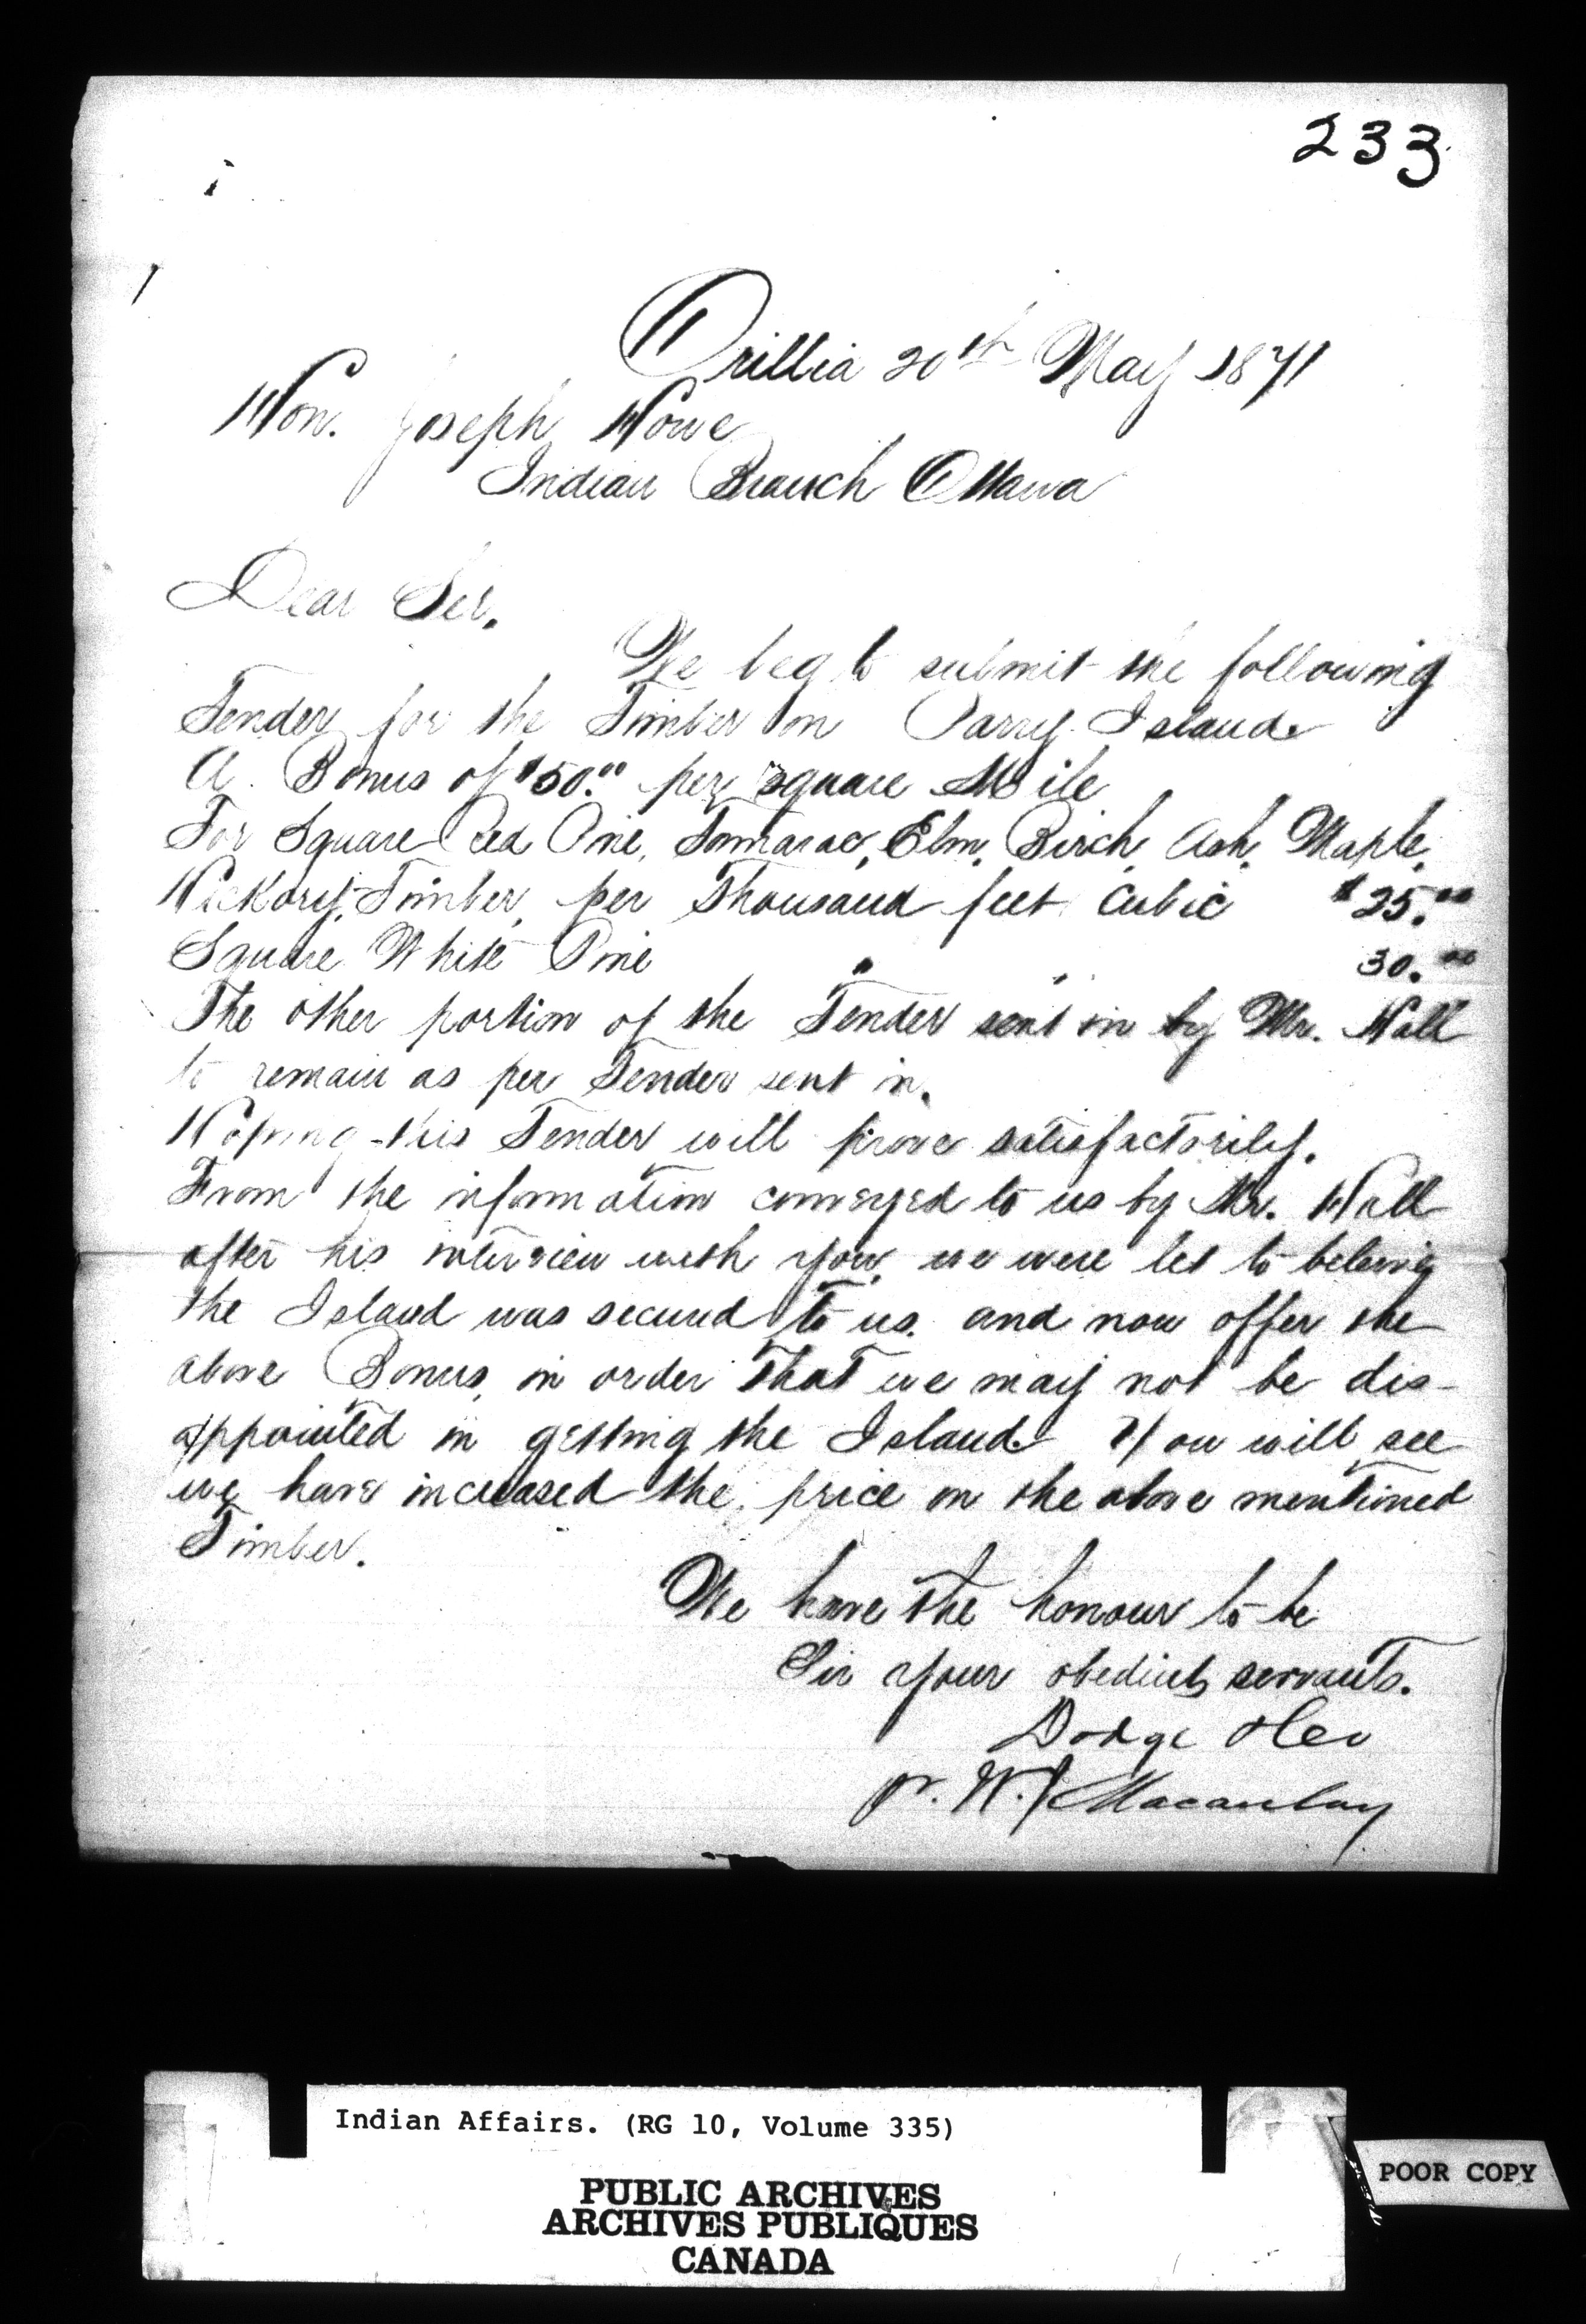 233
Orillia 20th May 1871
Hon. Joseph Howe
Indian Branch Ottawa
Dear Sir.
We beg to submit the following
Tender for the Timber on Parry Island.
A Bonus of $50.00 per square Mile
For Square Red Pine, Tamarac, Elm, Birch, Ash, Maple,
Hickory, Timber, per Thousand feet Cubic $25.00
Square White Pine " " 30.00
The other portion of the Tender sent in by Mr. Hall
to remain as per Tender sent in.
Hoping this Tender will prove satisfactorily.
From the information conveyed to us by Mr. Hall
after his interview with you, we were let to beleive
the Island was secured to us. and now offer the
above Bonus, in order that we may not be dis-
appointed in getting the Island. You will see
we have increased the price on the above mentioned
Timber.
We have the honour to be
Sir your obedient servants.
Dodge & Co
pr. W. J. Macaulay
Indian Affairs. (RG 10, Volume 335)
PUBLIC ARCHIVES
ARCHIVES PUBLIQUES
CANADA
POOR COPY